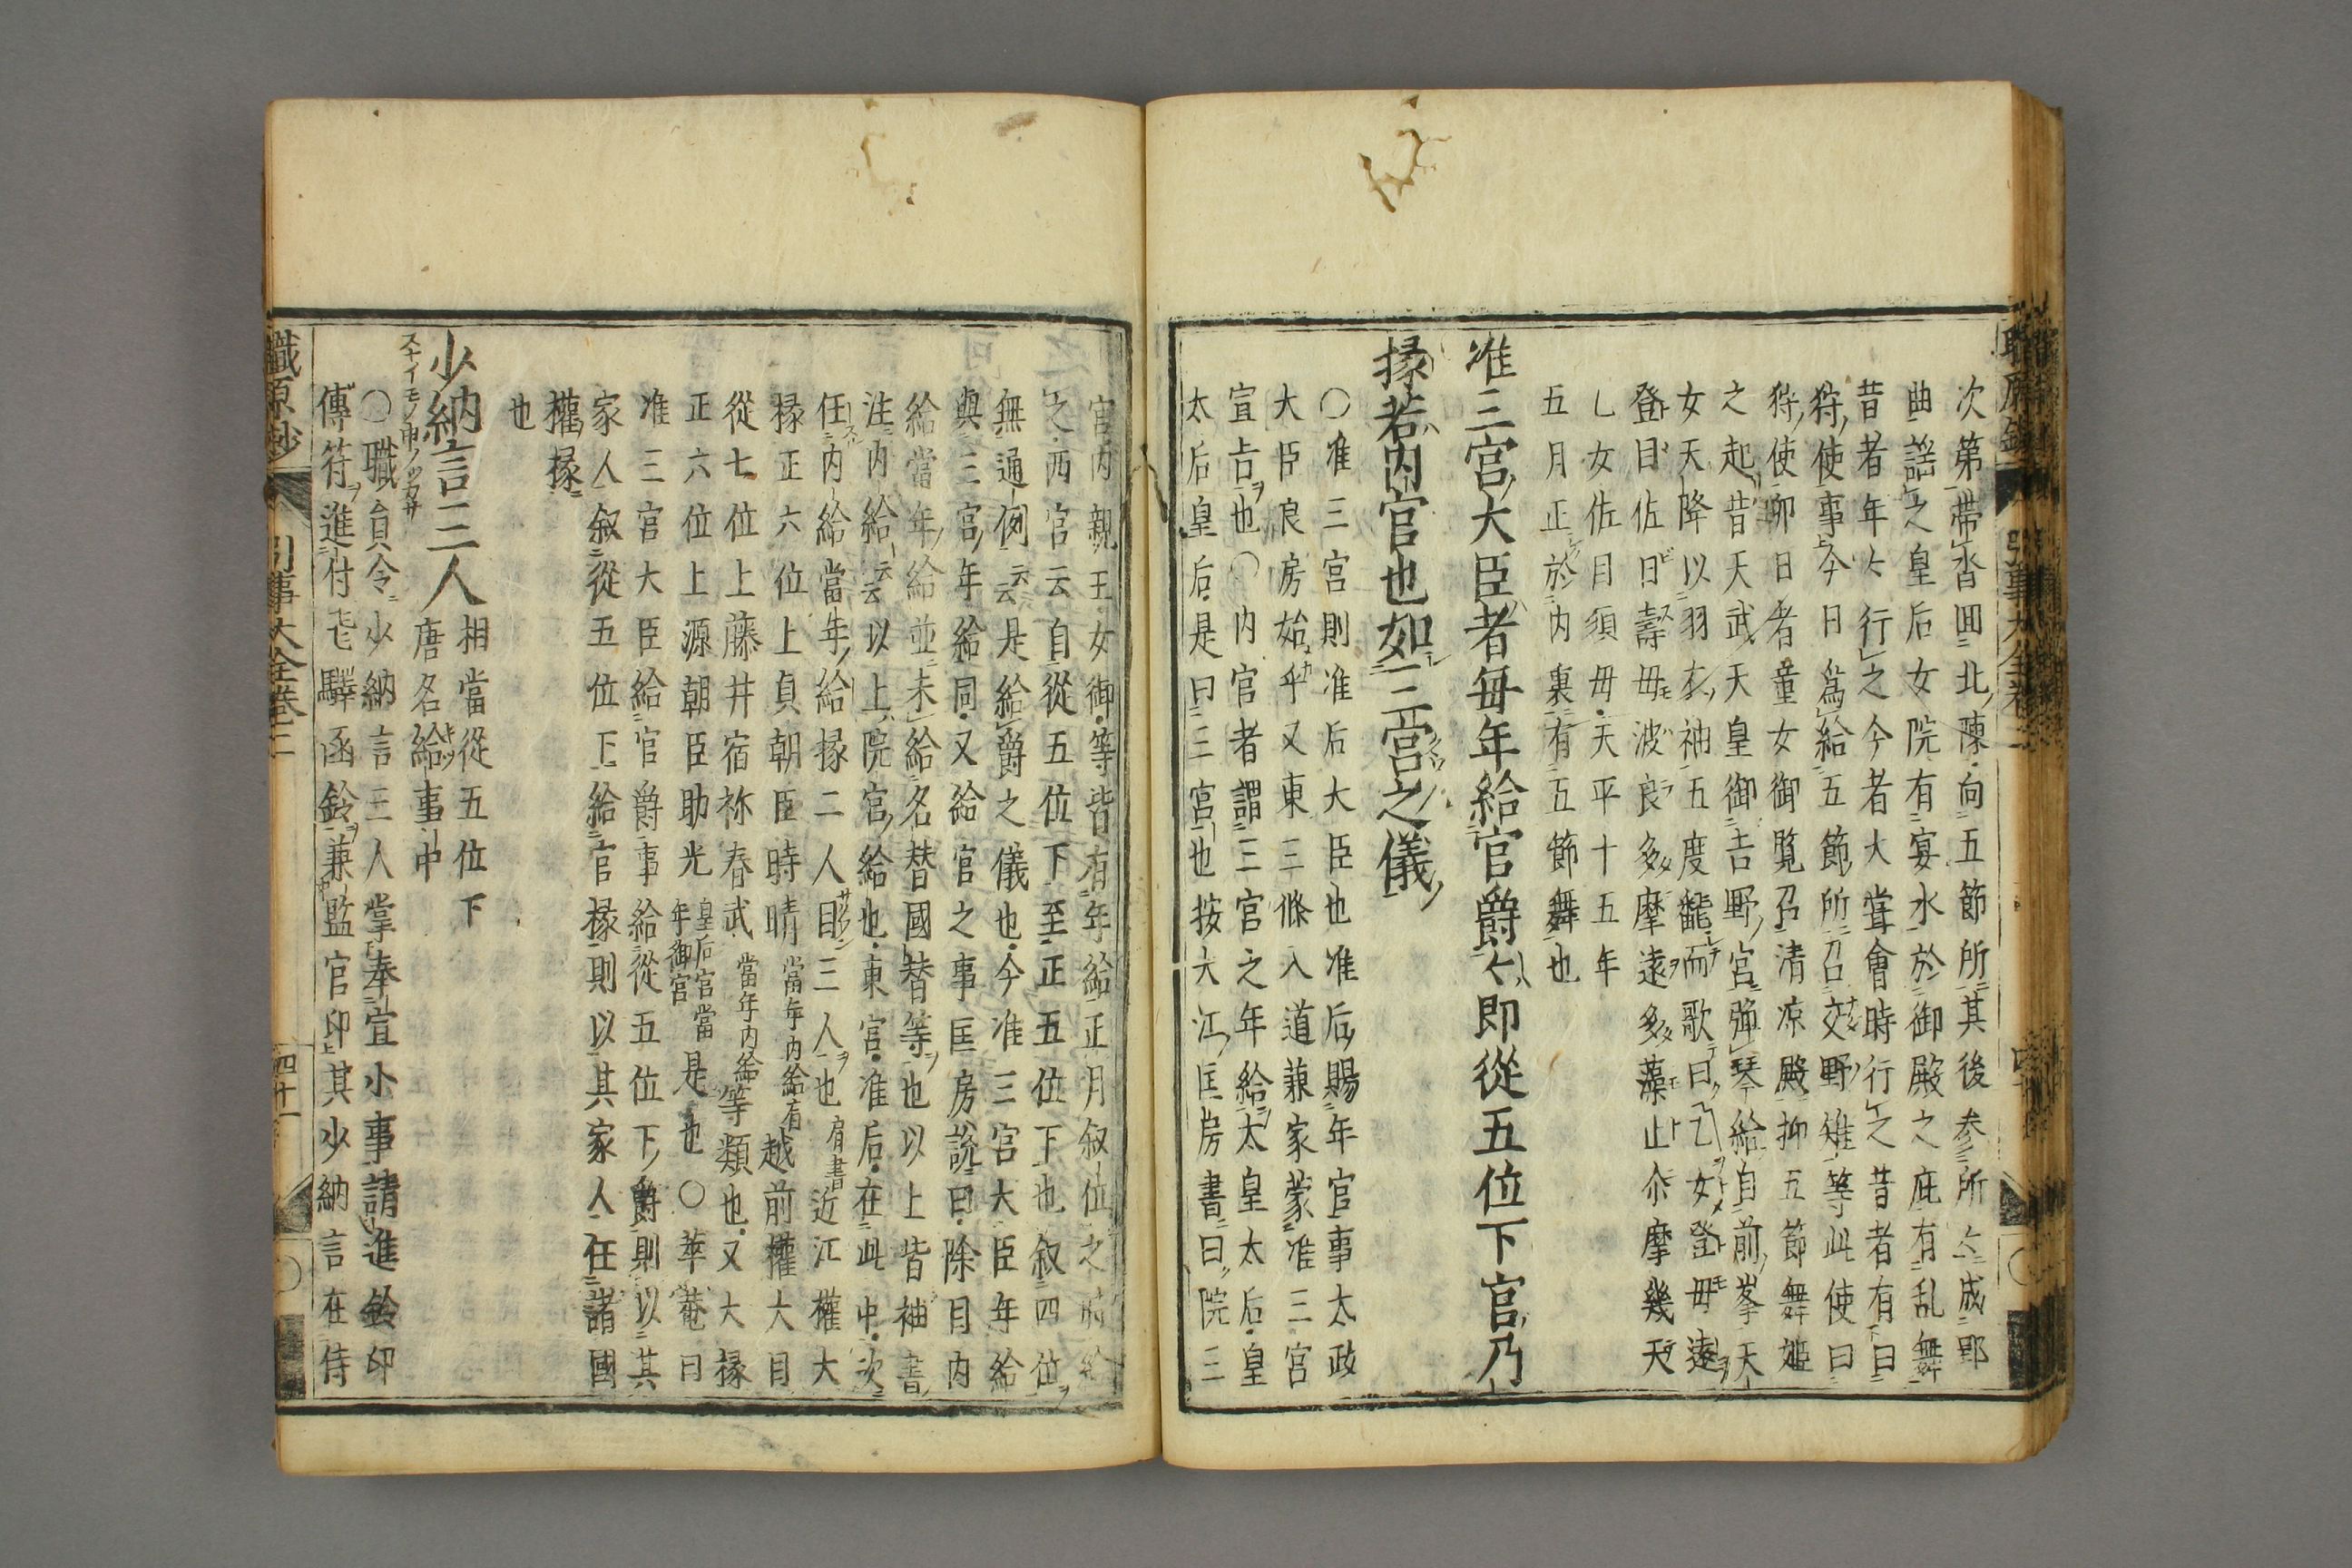 次第帶沓回北陳向五節所其後参所々成郢
曲謡之皇后女院有宴水於御殿之庇有乱舞
昔者年々行之今者大甞會時行之昔者有曰
狩使事今日爲給五節所召交野雉等此使曰
狩使卯日者童女御覧召清凉殿抑五節舞姬
之起昔天武天皇御吉野宮彈琴給自前峯天
女天降以羽衣袖五度飜而歌曰乙女登毋遠
登目佐日壽毋波良多摩遠多藻止尒摩幾天
乚女佐目須毋天平十五年
五月正於内裏有五節舞也
准三宮大臣者毎年給官爵々即從五位下官乃
掾若内官也如三宮之儀
〇准三宮則准后大臣也准后賜年官事太政
大臣良房始乎又東三條入道兼家蒙准三宮
宣旨也〇内官者謂三官之年給太皇太后皇
太后皇后是曰三宮也按大江匡房書曰院三
宮内親王女御等皆有年給正月叙位之時給
之西宮云自從五位下至正五位下也叙四位
無通例云云是給爵之儀也今准三宮大臣年給
與三宮年給同又給官之事匡房說曰除目内
給當年給並未給名替國替等也以上皆袖書
注内給云云以上院宮給也東宮准后在此中次
任内給當年給掾二人目三人也肩書近江權大
掾正六位上貞朝臣時晴當年内給有越前權大目
從七位上藤井宿祢春武當年内給等類也又大掾
正六位上源朝臣助光皇后宮當年御宮是也〇莘菴曰
准三宮大臣給官爵事給從五位下爵則以其
家人叙從五位下給官掾則以其家人任諸國
權掾
也
少納言三人相當從五位下唐名給事中
スナイモノ申ノツカサ
〇職員令少納言三人掌奉宣小事請進鈴印
傳符進付飛驛函鈴兼監官印其少納言在侍
職原抄 引事大全卷二 四十一